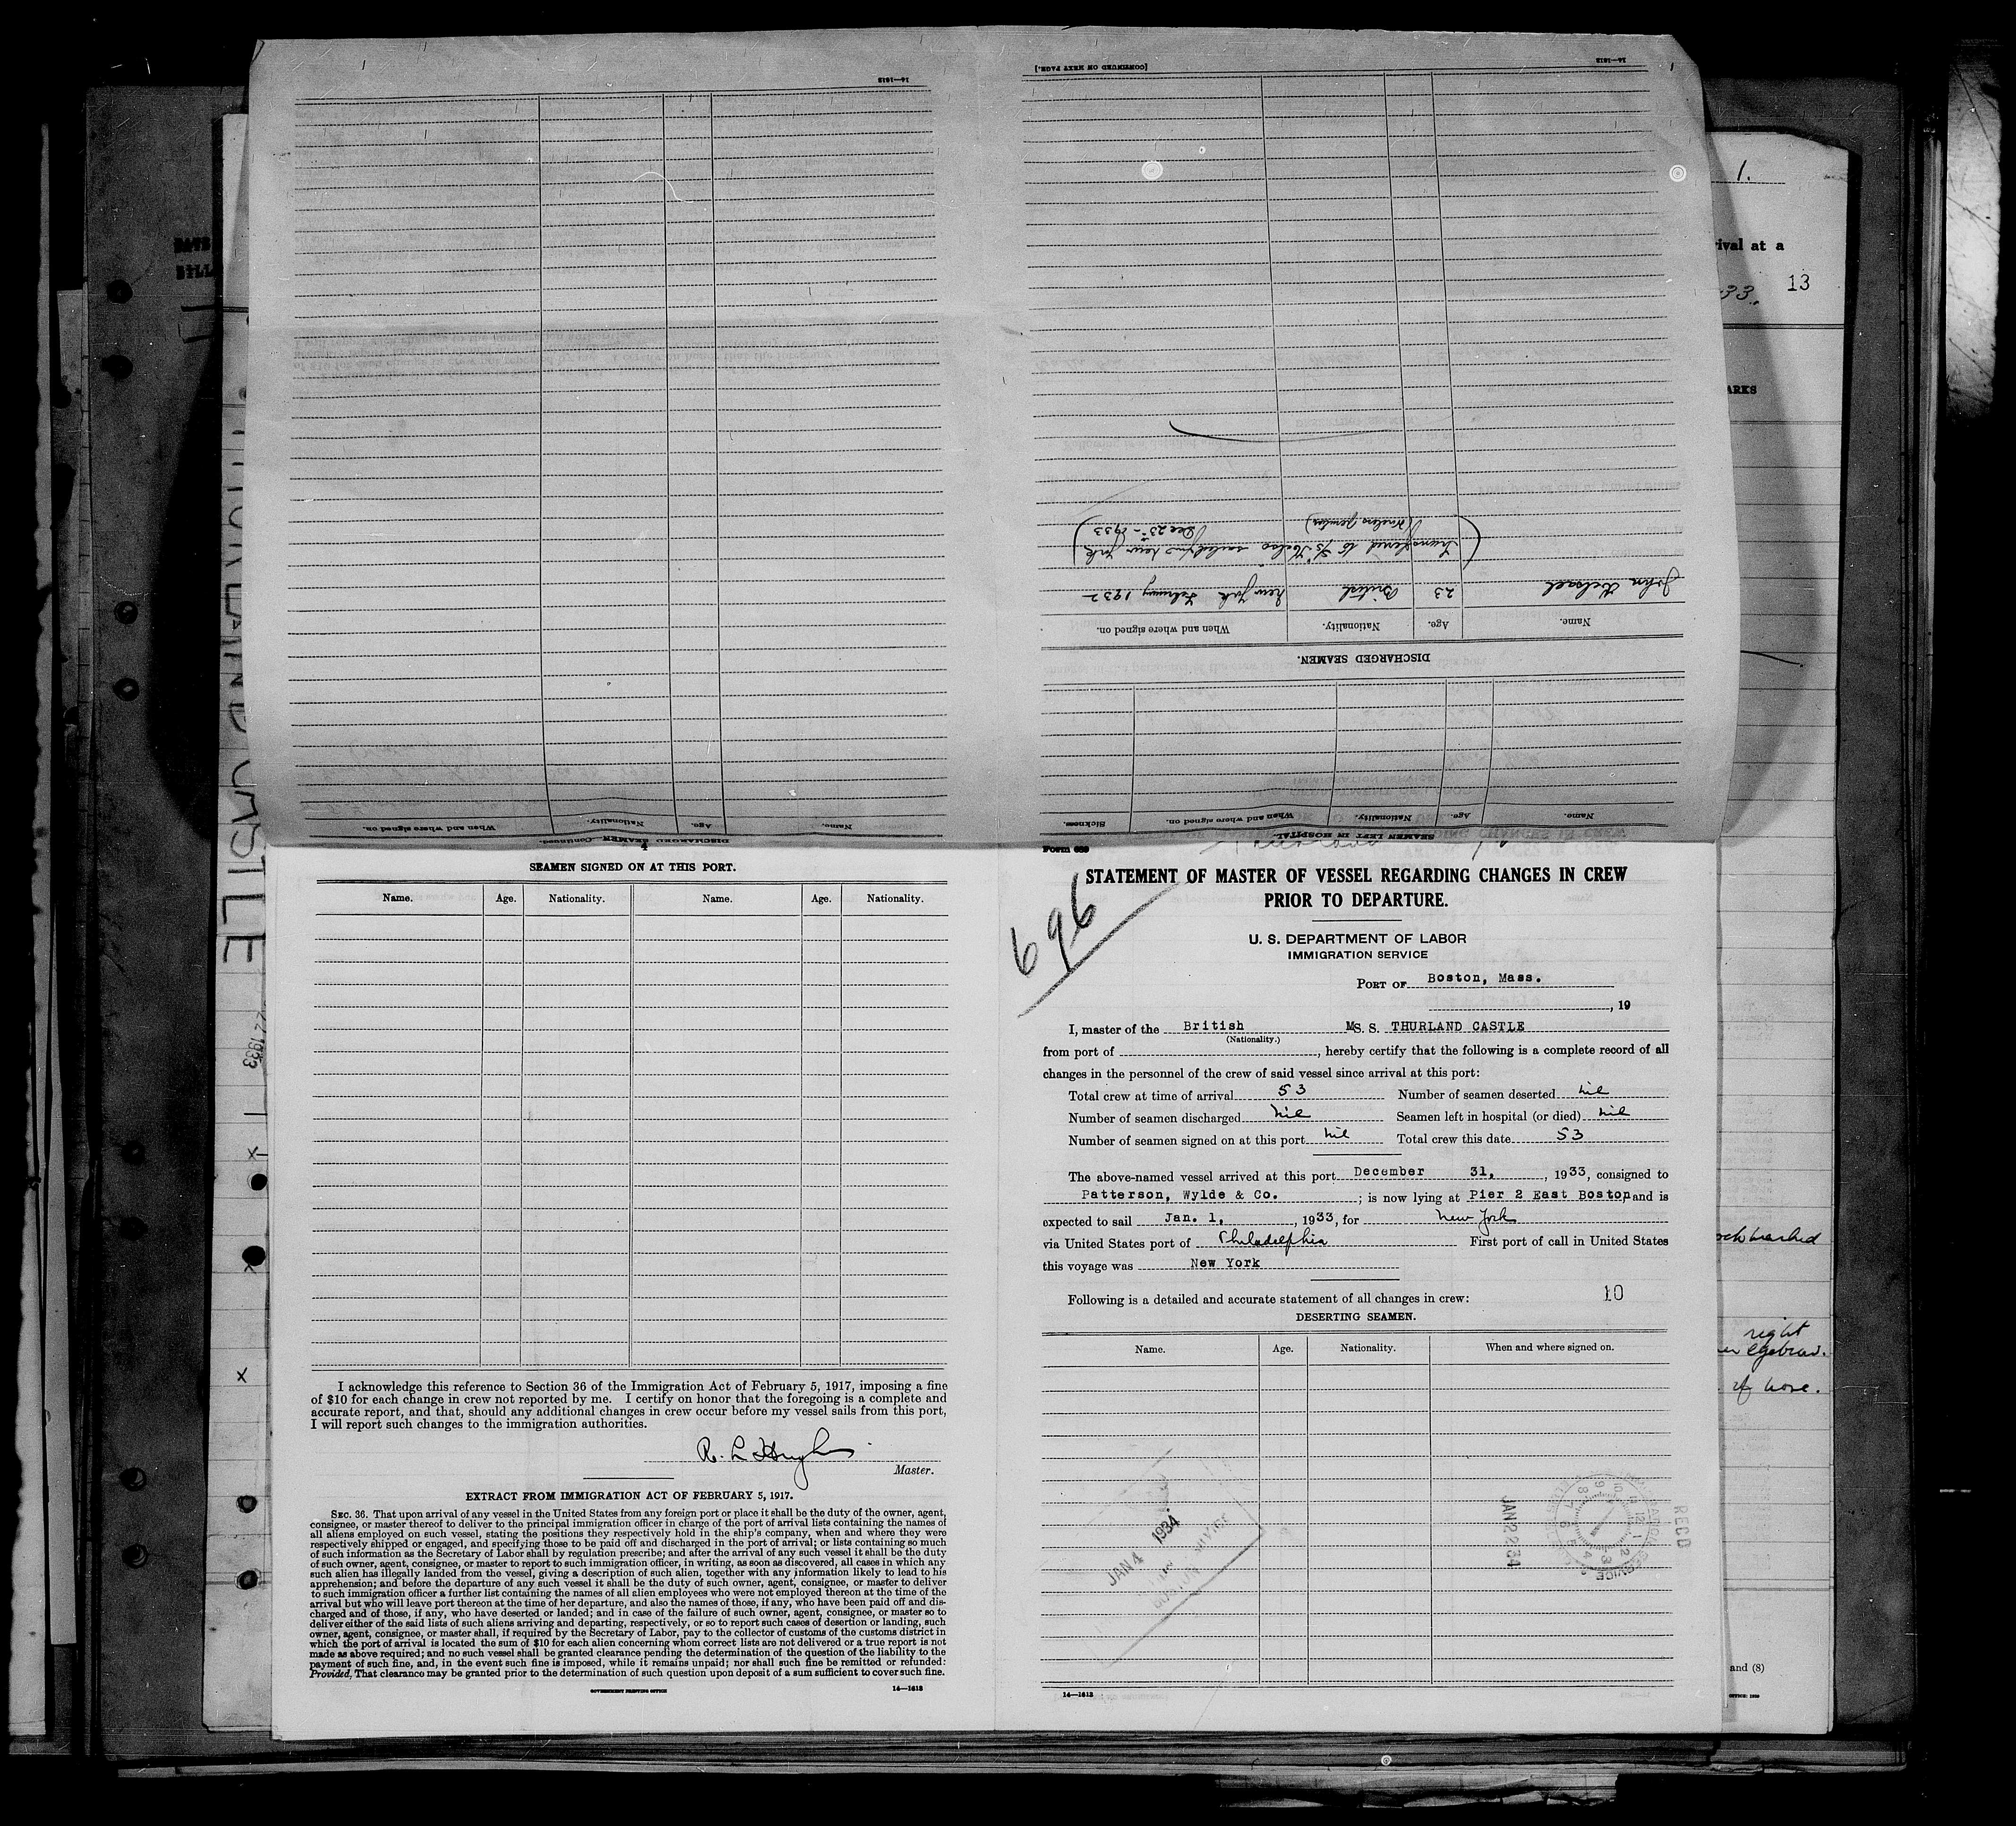 14—1613
[CONTINUED ON NEXT PAGE.]
14—1613
DISCHARGED SEAMEN—Continued.
Name. Age. Nationality. When and where signed on.
SEAMEN LEFT IN HOSPITAL.
Name. Age. Nationality. When and where signed on. Sickness.
DISCHARGED SEAMEN.
Name. Age. Nationality. When and where signed on.
John 23 British New York February 1932
(Transferred to S/S "Kelso" sailed from New York
Dec 23rd - 1933)
1.
rival at a
33. 13
ARKS
DATE
BILL
THURLAND CASTLE
1933
4
SEAMEN SIGNED ON AT THIS PORT.
Name. Age. Nationality. Name. Age. Nationality.
I acknowledge this reference to Section 36 of the Immigration Act of February 5, 1917, imposing a fine
of $10 for each change in crew not reported by me. I certify on honor that the foregoing is a complete and
accurate report, and that, should any additional changes in crew occur before my vessel sails from this port,
I will report such changes to the immigration authorities.
R. L Hughes
Master.
EXTRACT FROM IMMIGRATION ACT OF FEBRUARY 5, 1917.
SEC. 36. That upon arrival of any vessel in the United States from any foreign port or place it shall be the duty of the owner, agent,
consignee, or master thereof to deliver to the principal immigration officer in charge of the port of arrival lists containing the names of
all aliens employed on such vessel, stating the positions they respectively hold in the ship's company, when and where they were
respectively shipped or engaged, and specifying those to be paid off and discharged in the port of arrival; or lists containing so much
of such information as the Secretary of Labor shall by regulation prescribe; and after the arrival of any such vessel it shall be the duty
of such owner, agent, consignee, or master to report to such immigration officer, in writing, as soon as discovered, all cases in which any
such alien has illegally landed from the vessel, giving a description of such alien, together with any information likely to lead to his
apprehension; and before the departure of any such vessel it shall be the duty of such owner, agent, consignee, or master to deliver
to such immigration officer a further list containing the names of all alien employees who were not employed thereon at the time of the
arrival but who will leave port thereon at the time of her departure, and also the names of those, if any, who have been paid off and dis-
charged and of those, if any, who have deserted or landed; and in case of the failure of such owner, agent, consignee, or master so to
deliver either of the said lists of such aliens arriving and departing, respectively, or so to report such cases of desertion or landing, such
owner, agent, consignee, or master shall, if required by the Secretary of Labor, pay to the collector of customs of the customs district in
which the port of arrival is located the sum of $10 for each alien concerning whom correct lists are not delivered or a true report is not
made as above required; and no such vessel shall be granted clearance pending the determination of the question of the liability to the
payment of such fine, and, in the event such fine is imposed, while it remains unpaid; nor shall such fine be remitted or refunded:
Provided, That clearance may be granted prior to the determination of such question upon deposit of a sum sufficient to cover such fine.
GOVERNMENT PRINTING OFFICE 14—1613
Form 689
696
STATEMENT OF MASTER OF VESSEL REGARDING CHANGES IN CREW
PRIOR TO DEPARTURE.
U. S. DEPARTMENT OF LABOR
IMMIGRATION SERVICE
PORT OF Boston, Mass.
, 19
I, master of the British MS. S. THURLAND CASTLE
(Nationality.)
from port of , hereby certify that the following is a complete record of all
changes in the personnel of the crew of said vessel since arrival at this port:
Total crew at time of arrival 53 Number of seamen deserted nil
Number of seamen discharged nil Seamen left in hospital (or died) nil
Number of seamen signed on at this port nil Total crew this date 53
The above-named vessel arrived at this port December 31, , 1933, consigned to
Patterson, Wylde & Co. ; is now lying at Pier 2 East Boston and is
expected to sail Jan. 1, , 1933, for New York
via United States port of Philadelphia First port of call in United States
this voyage was New York
Following is a detailed and accurate statement of all changes in crew: 10
DESERTING SEAMEN.
Name. Age. Nationality. When and where signed on.
JAN 4 1934
JAN 2 34
RECD
14—1613
right
eyebrow.
of nose.
and (8)